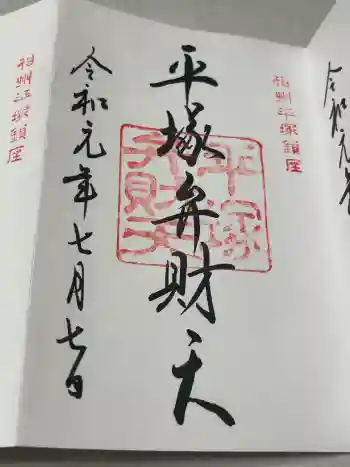 令和元年
相州平塚鎮座
平塚弁財天
平塚
弁財天
令和元年七月七日
相州平塚鎮座